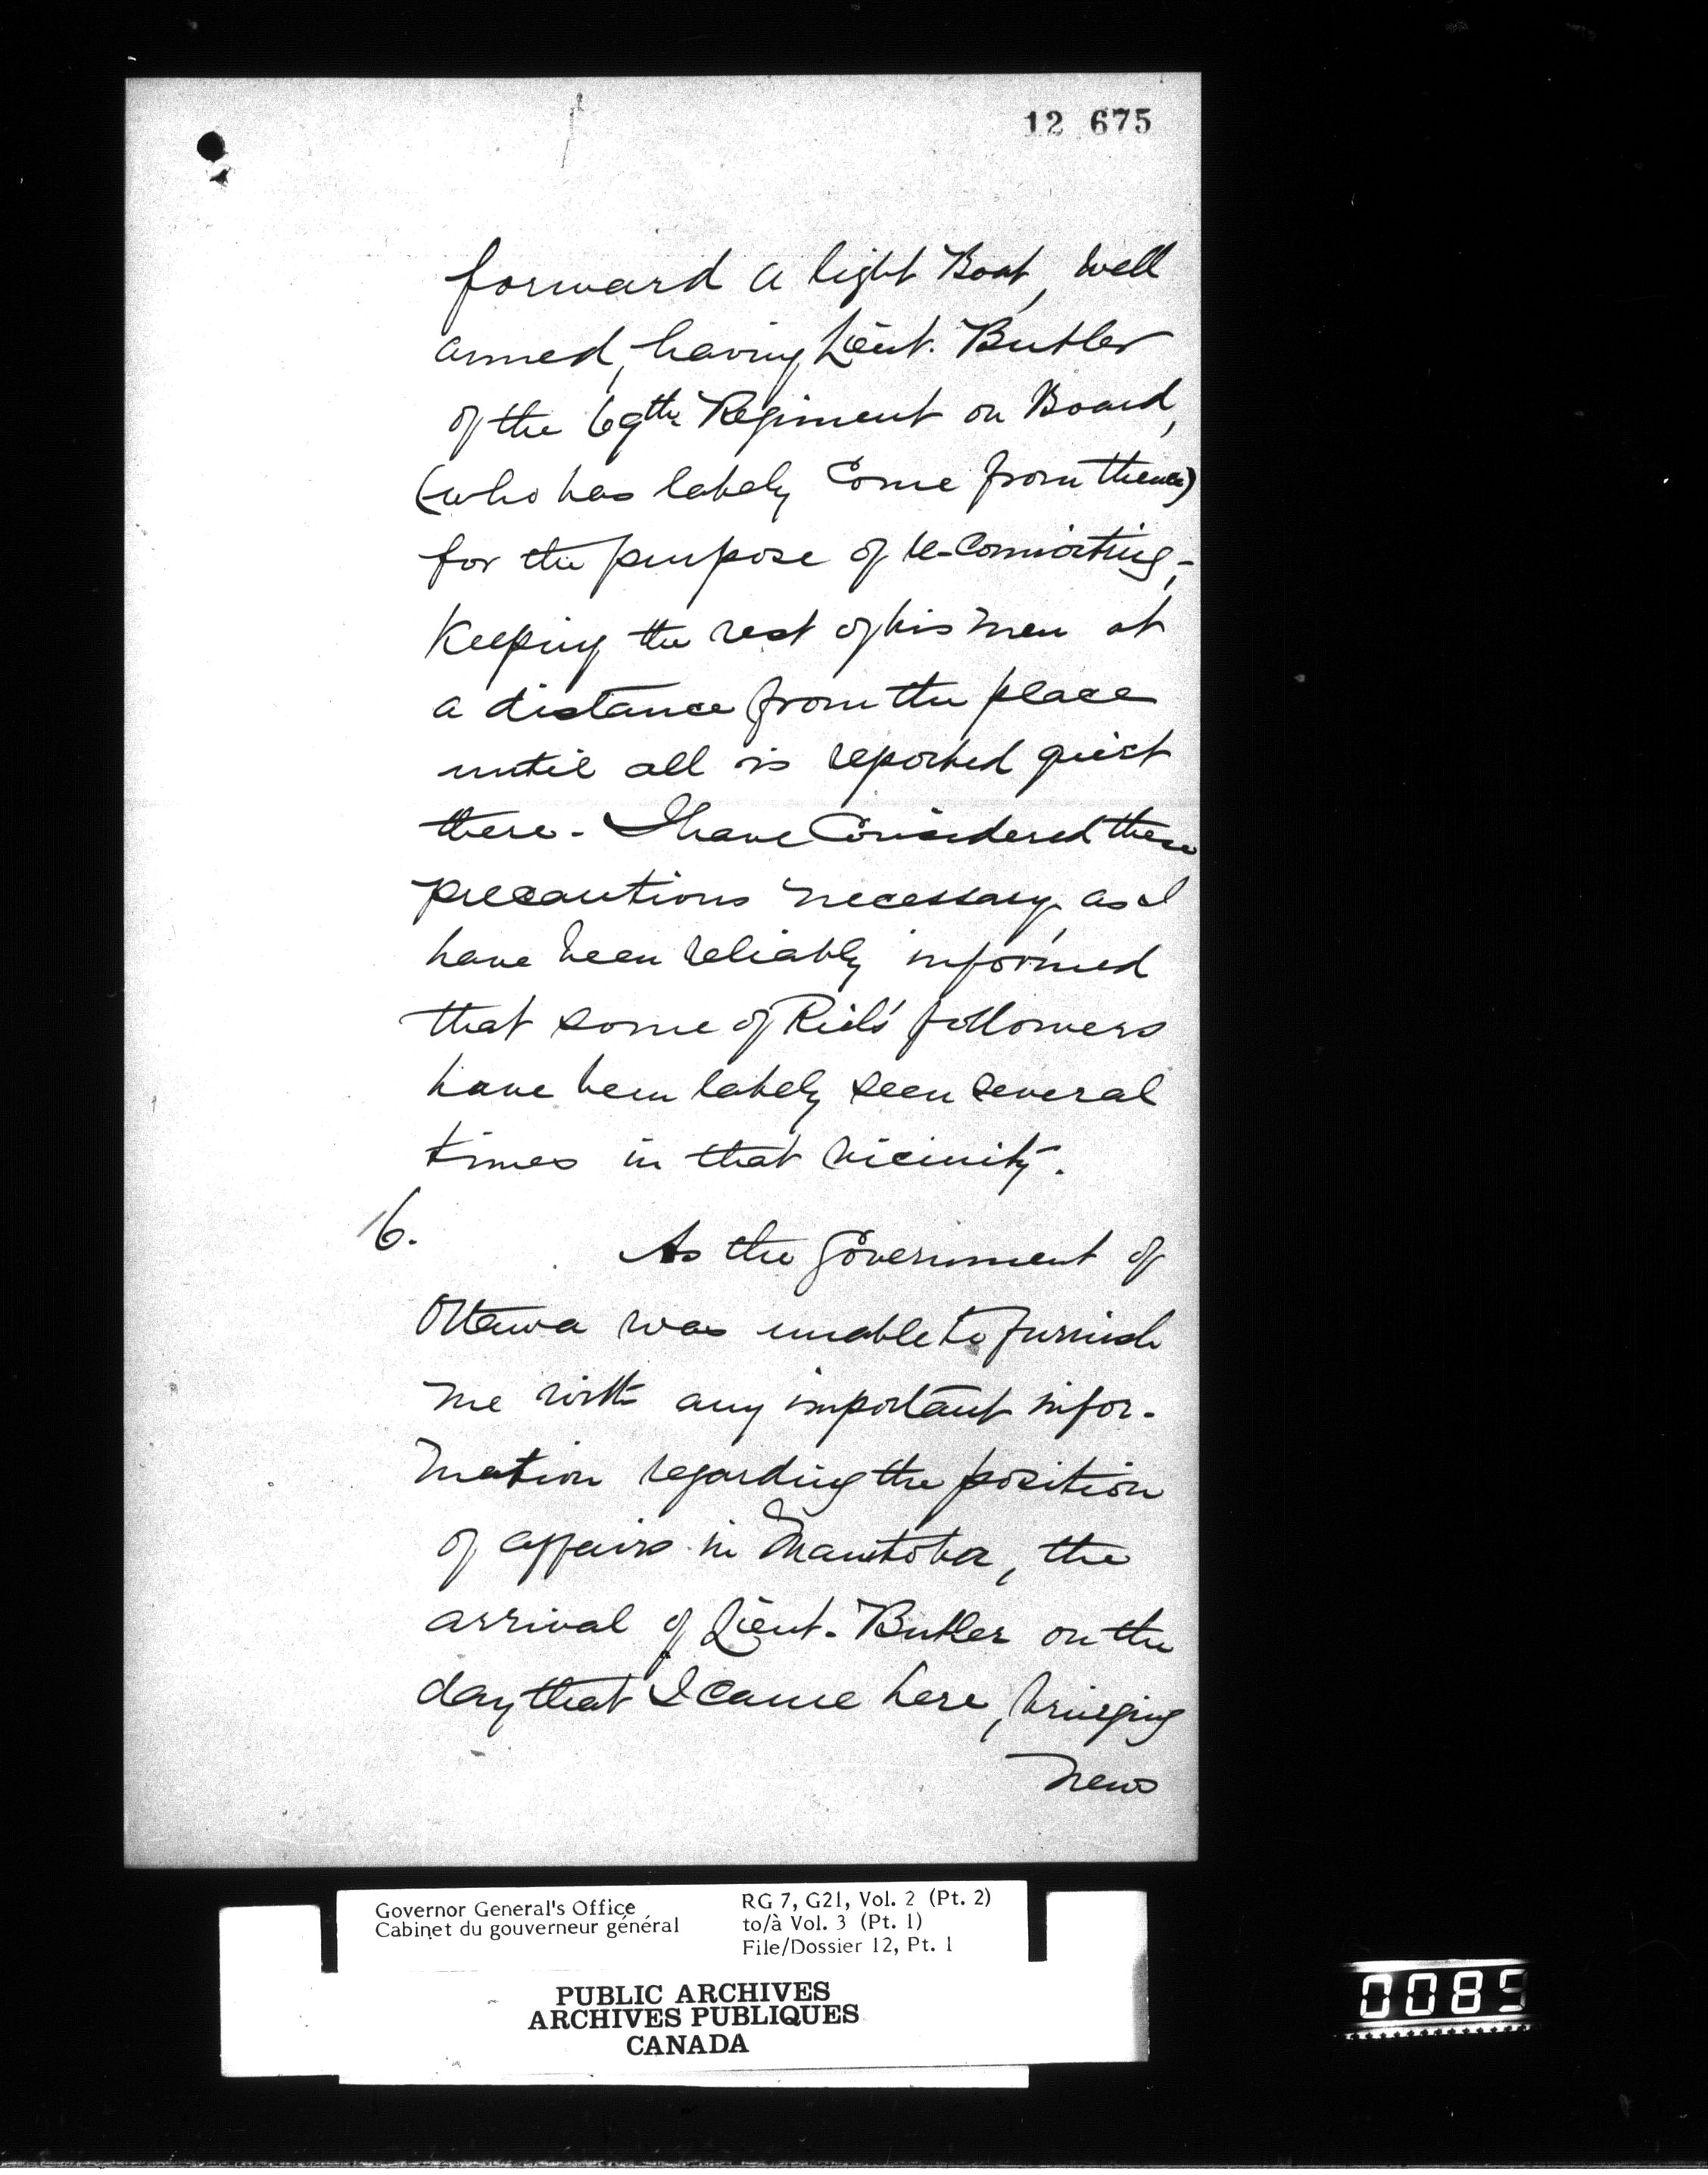 12 675
forward a light Boat, well
armed, having Lieut. Butler
of the 69th Regiment on Board,
(who has lately Come from thence)
for the purpose of re-Connoitring,-
Keeping the rest of his men at
a distance from the place
until all is reported quiet
there - I have Considered these
precautions necessary, as I
have been reliably informed
that some of Riel's followers
have been lately seen several
times in that vicinity.
16.
As the Government of
Ottawa was unable to furnish
me with any important infor-
mation regarding the position
of affairs in Manitoba, the
arrival of Lieut. Butler on the
day that I came here, bringing
news
Governor General's Office
Cabinet du gouverneur général
RG 7, G21, Vol. 2 (Pt. 2)
to/à Vol. 3 (Pt. 1)
File/Dossier 12, Pt. 1
PUBLIC ARCHIVES
ARCHIVES PUBLIQUES
CANADA
0085